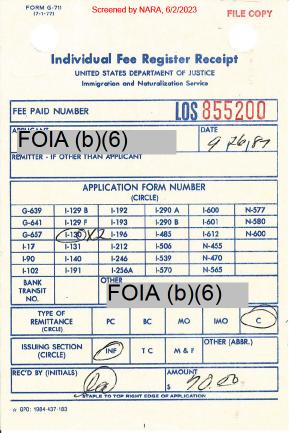 FORM G-711
(7-1-77)
Screened by NARA, 6/2/2023
FILE COPY
Individual Fee Register Receipt
UNITED STATES DEPARTMENT OF JUSTICE
Immigration and Naturalization Service
FEE PAID NUMBER LOS 855200
APPLICANT
FOIA (b)(6)
DATE
REMITTER - IF OTHER THAN APPLICANT
APPLICATION FORM NUMBER
(CIRCLE)
G-639 I-129 B I-192 I-290 A I-600 N-577
G-641 I-129 F I-193 I-290 B I-601 N-580
G-657 I-130 X2 I-196 I-485 I-612 N-600
I-17 I-131 I-212 I-506 N-455
I-90 I-140 I-246 I-539 N-470
I-102 I-191 I-256A I-570 N-565
BANK
TRANSIT
NO.
OTHER
FOIA (b)(6)
TYPE OF
REMITTANCE
(CIRCLE)
PC BC MO IMO C
ISSUING SECTION
(CIRCLE)
INF T C M & F OTHER (ABBR.)
REC'D BY (INITIALS)
AMOUNT
$ 70.00
STAPLE TO TOP RIGHT EDGE OF APPLICATION
☆ GPO: 1984-437-183
1